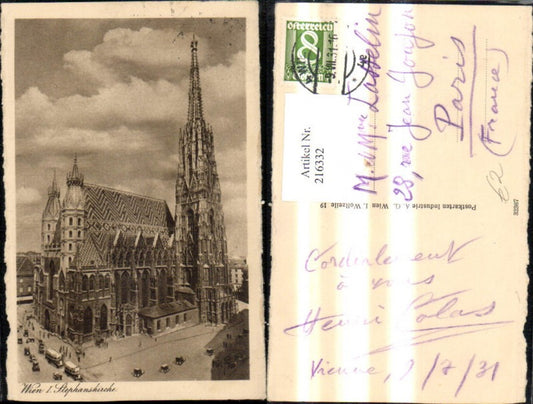 Wien I. Stephanskirche.
Österreich
20
Artikel Nr.
216332
M. & Mme
28, rue Jean Goujon
Paris
(France)
Postkarten Industrie A. G., Wien I. Wollzeile 19
Cordialement
à vous
Henri
Vienne, 9/7/31